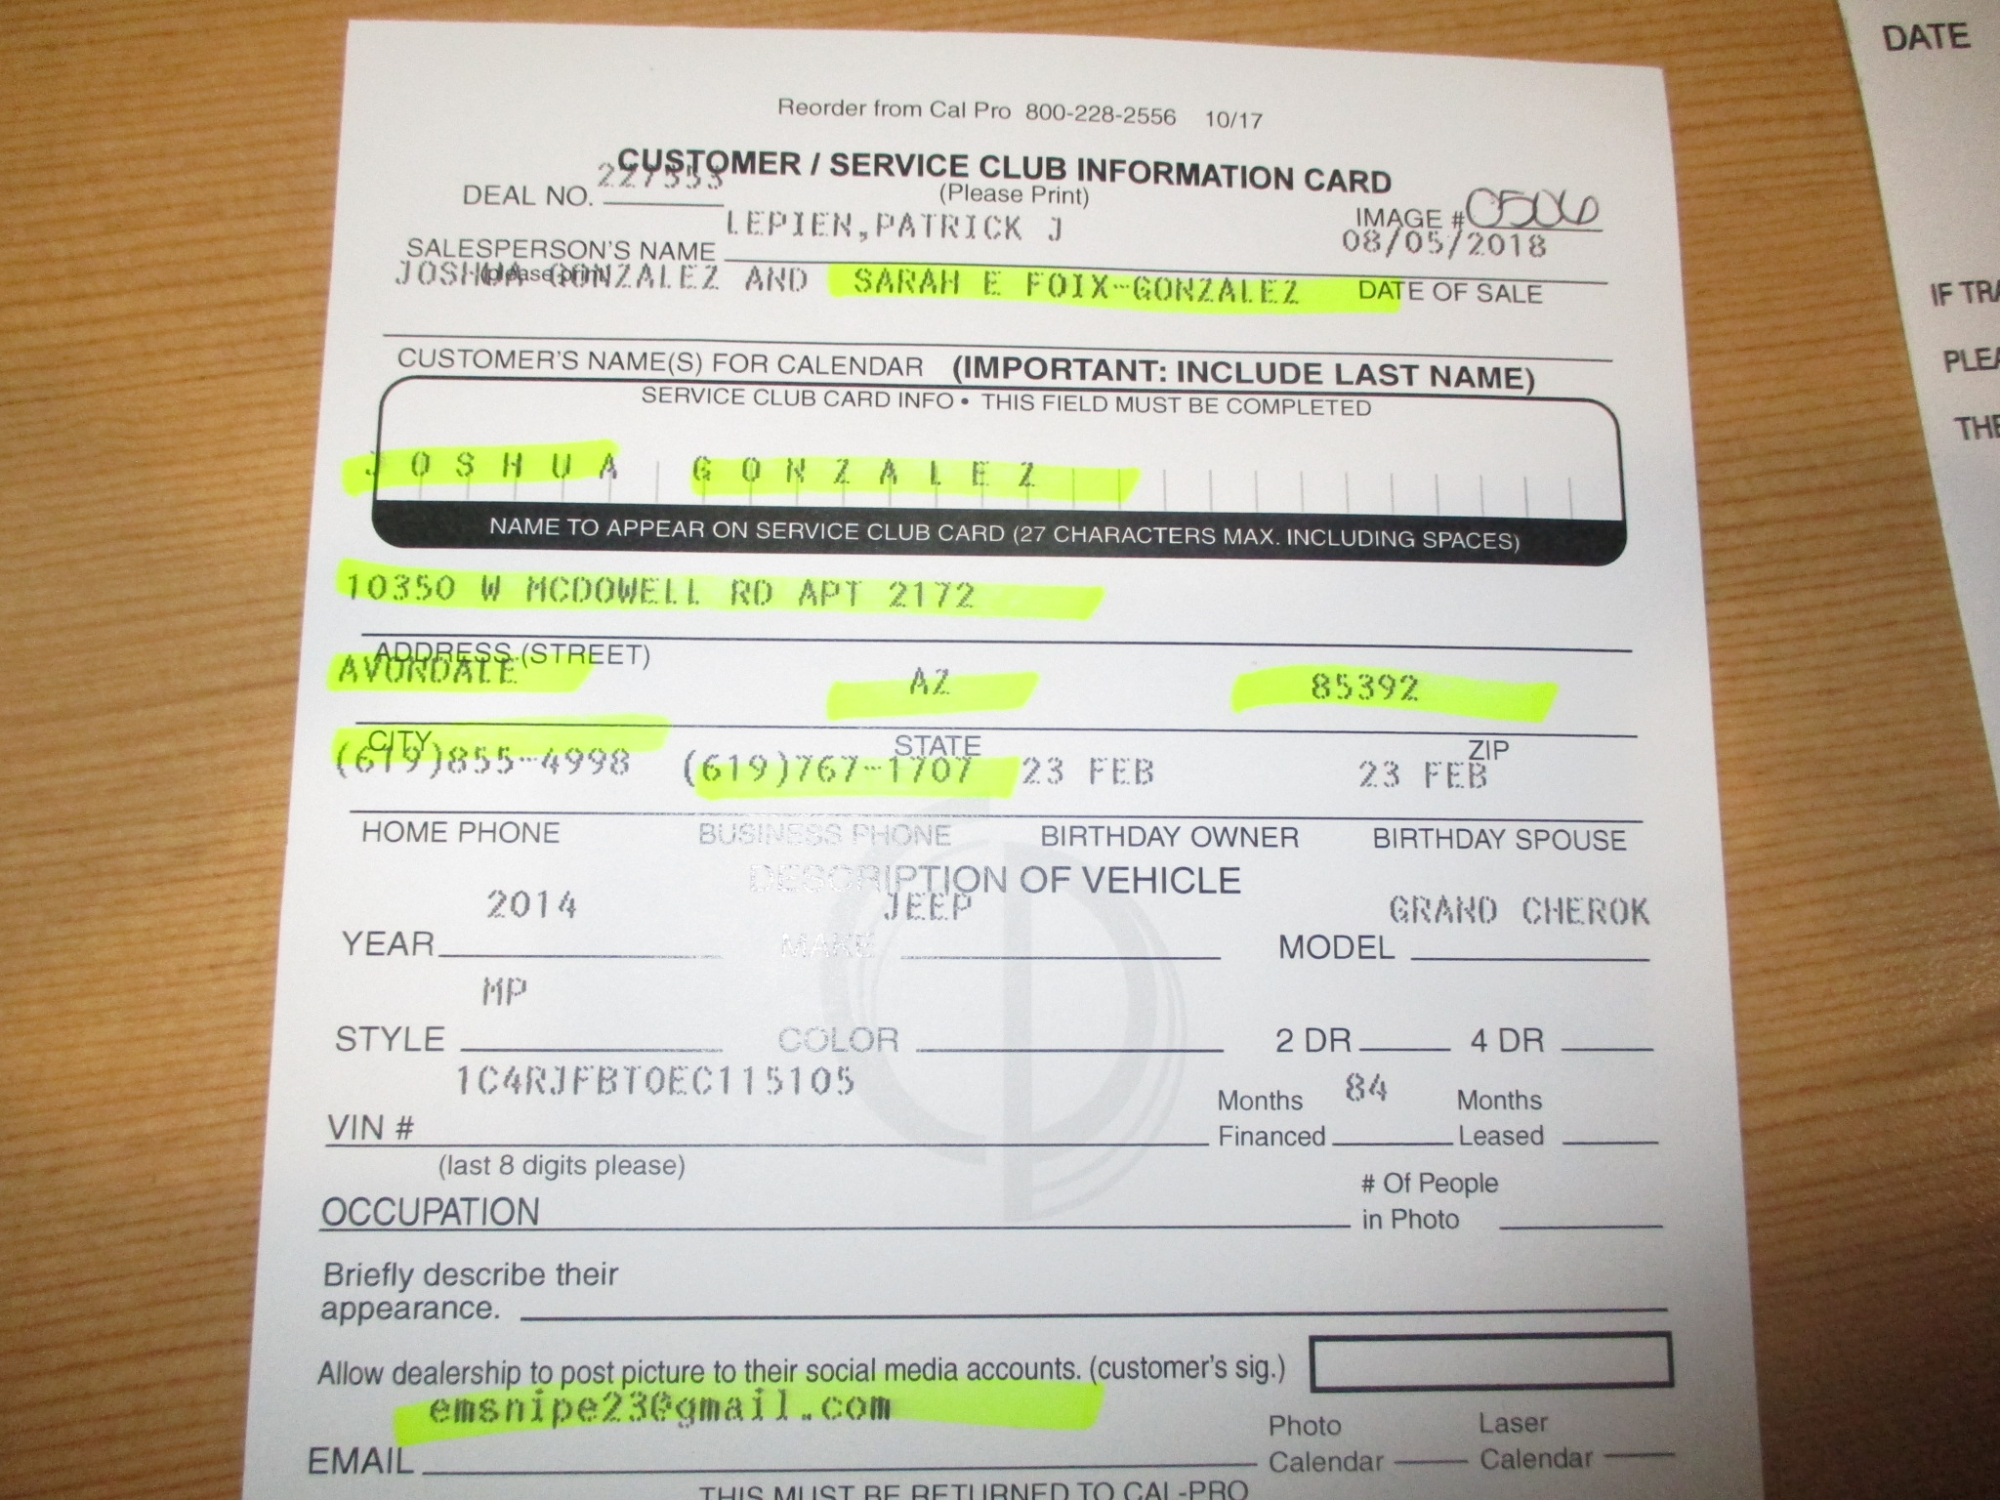 Reorder from Cal Pro 800-228-2556 10/17
CUSTOMER / SERVICE CLUB INFORMATION CARD
DEAL NO. 227553 (Please Print) IMAGE # 0506
SALESPERSON'S NAME LEPIEN,PATRICK J 08/05/2018
(please print) DATE OF SALE
JOSHUA GONZALEZ AND SARAH E FOIX-GONZALEZ
CUSTOMER'S NAME(S) FOR CALENDAR (IMPORTANT: INCLUDE LAST NAME)
SERVICE CLUB CARD INFO • THIS FIELD MUST BE COMPLETED
JOSHUA GONZALEZ
NAME TO APPEAR ON SERVICE CLUB CARD (27 CHARACTERS MAX. INCLUDING SPACES)
10350 W MCDOWELL RD APT 2172
ADDRESS (STREET)
AVONDALE AZ 85392
CITY STATE ZIP
(619)855-4998 (619)767-1707 23 FEB 23 FEB
HOME PHONE BUSINESS PHONE BIRTHDAY OWNER BIRTHDAY SPOUSE
DESCRIPTION OF VEHICLE
2014 JEEP GRAND CHEROK
YEAR MAKE MODEL
MP
STYLE COLOR 2 DR 4 DR
1C4RJFBT0EC115105
VIN # Months Financed 84 Months Leased
(last 8 digits please)
OCCUPATION # Of People in Photo
Briefly describe their
appearance.
Allow dealership to post picture to their social media accounts. (customer's sig.)
emsnipe23@gmail.com
EMAIL Photo Calendar Laser Calendar
THIS MUST BE RETURNED TO CAL-PRO
DATE
IF TRA
PLEA
THE